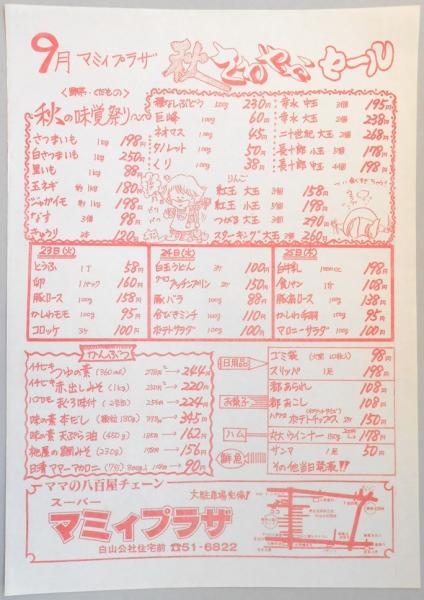 9月 マミィプラザ 秋 さわやか セール
〈野菜・くだもの〉
秋の味覚祭り
さつまいも 1kg 198円
白さつまいも 1kg 250円
里いも 1kg 88円
玉ネギ 約1kg 180円
ジャガイモ 約1kg 198円
なす 3個 98円
きゅうり 2本 120円
種なしぶどう 100g 230円
巨峰 100g 60円
ネオマス 100g 45円
100g 50円
くり 100g 38円
幸水 中玉 3個 195円
幸水 大玉 2個 238円
二十世紀 大玉 2個 268円
長十郎 小玉 5個 178円
長十郎 中玉 4個 198円
りんご
紅玉 大玉 3個 158円
紅玉 小玉 5個 198円
つがる 大玉 3個 290円
スターキング 大玉 2個 260円
23日(火)
とうふ 1丁 58円
卵 1パック 160円
豚ロース 100g 158円
かしわモモ 100g 95円
コロッケ 3ケ 100円
24日(水)
白玉うどん 3ケ 100円
プッチンプリン 2ケ 150円
豚バラ 100g 88円
合びきミンチ 100g 110円
ポテトサラダ 100g 100円
25日(木)
白牛乳 1000cc 198円
食パン 1ケ 108円
豚肩ロース 100g 138円
かしわ手羽 100g 95円
マカロニーサラダ 100g 100円
かんぶつ
イチビキ つゆの素 (360ml) 278円→244円
イチビキ 赤出しみそ (1kg) 238円→220円
ハウセモ 秋3味付 (2号缶) 235円→224円
味の素 本だし 398円→345円
味の素 天ぷら油 185円→162円
桃屋の鯛みそ 178円→156円
日清 ママーマカロニ 300g 149円→90円
日用品
ゴミ袋 98円
スリッパ 1足 198円
お菓子
都あられ 108円
都おこし 108円
ポテトチップス 2ケ 150円
ハム
ウインナー 178円
鮮魚
サンマ 1尾 50円
その他当日奉仕!!
ママの八百屋チェーン
スーパー
マミィプラザ
白山公社住宅前 ☎51-6822
大駐車場完備!